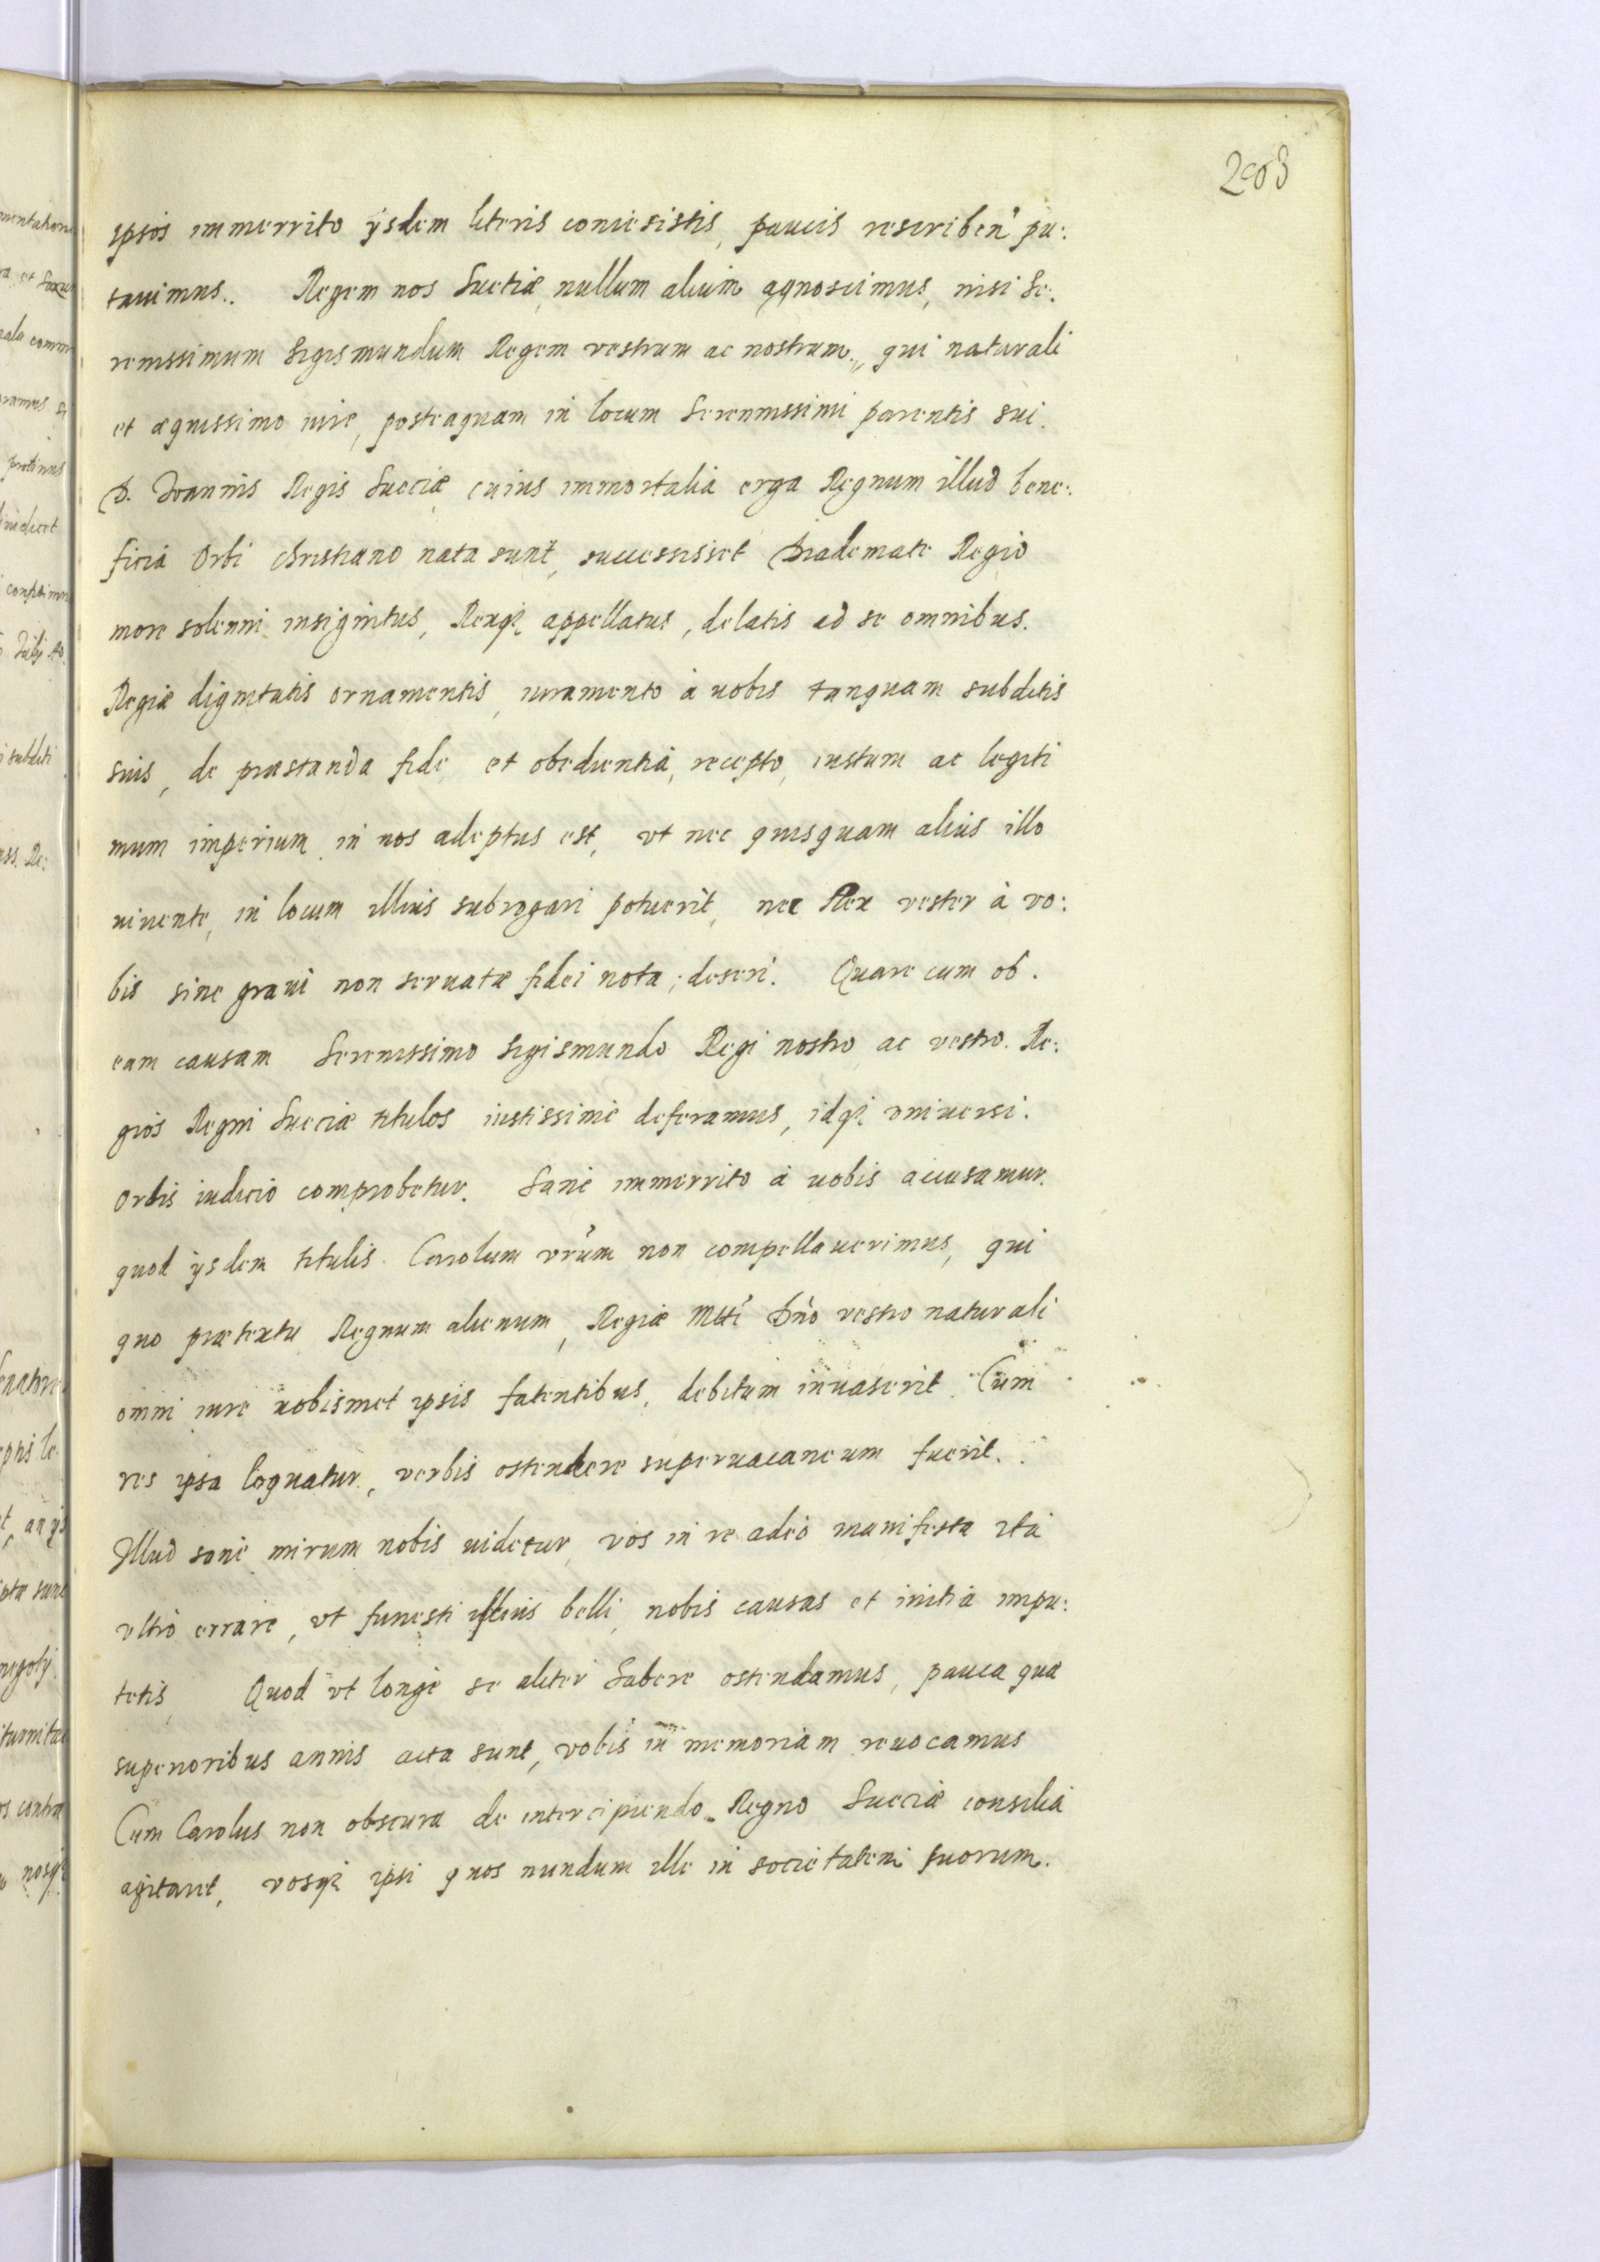 2008
ipsos immerrito ijsdem literis coniecistis, paucis rescriben̄ pu:
tauimus. Regem nos Suetiæ nullum alium agnoscimus, nisi Se:
renissimum Sigismundum Regem vestrum ac nostrum, qui naturali
et æquissimo iure, posteaquam in locum Serennissimi parentis sui.
D. Ioannis Regis Sueciæ, cuius immortalia erga Regnum illud bene:
ficia Orbi Christiano nata sunt, successisset Diademate Regio
more solenni insignitus, Rexq; appellatus, delatis ad se omnibus.
Regiæ dignitatis ornamentis, iuramento à uobis tanquam subditis
suis, de præstanda fide et obedientia, recepto, iustum ac legiti
mum imperium in nos adeptus est, vt nec quisquam alius illo
uiuente, in locum illius subrogari potuerit, nec Rex vester à vo:
bis sine graui non seruatæ fidei nota, deseri. Quare cum ob.
eam causam Serenissimo Sigismundo Regi nostro ac vestro. Re:
gios Regni Sueciæ titulos iustissimè deferamus, idq; vniuersi.
Orbis iudicio comprobetur. Sanè immerrito à uobis accusamur.
quod ijsdem titulis Carolum vr̄um non compellauerimus, qui
quo prætextu Regnum alienum, Regiæ Mtti Dn̄o vestro naturali
omni iure uobismet ipsis fatentibus, debitum inuaserit. Cum
res ipsa loquatur, verbis ostendere superuacaneum fuerit.
Illud sanè mirum nobis uidetur, vos in re adeò manifesta ità
vltrò errare, vt funesti illius belli, nobis causas et initia impu:
tetis. Quod vt longè se aliter habere ostendamus, pauca quæ
superioribus annis acta sunt, vobis in memoriam reuocamus
Cum Carolus non obscura de intercipiendo Regno Sueciæ consilia
agitaret, vosq; ipsi quos nundum ille in societatem suorum.